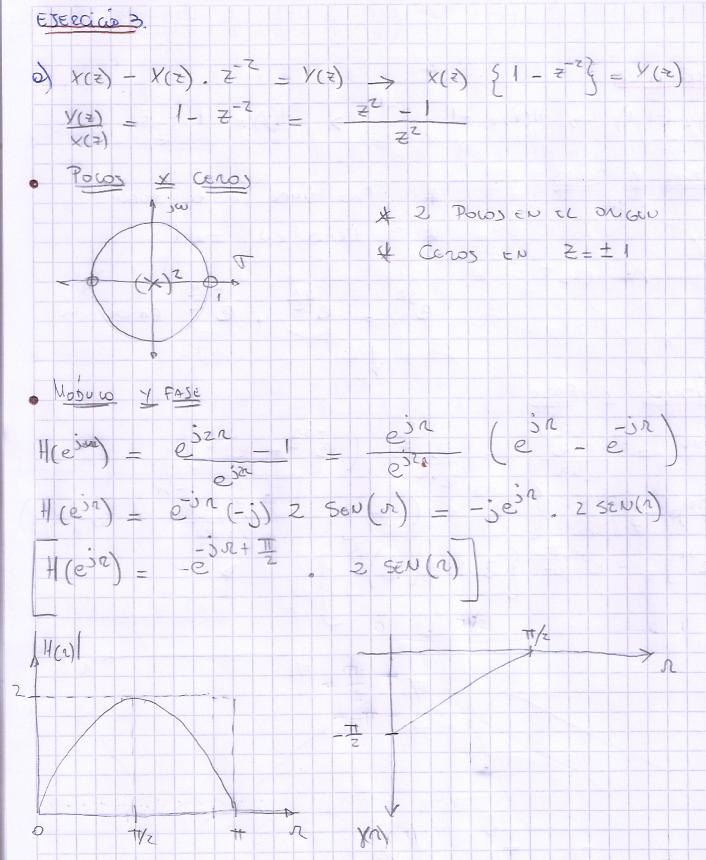 EJERCICIO 3.
a) X(z) - X(z) . z^-2 = Y(z) → X(z) {1 - z^-2} = Y(z)
Y(z)/X(z) = 1 - z^-2 = (z^2 - 1)/z^2
• POLOS Y CEROS
jω
* 2 POLOS EN EL ORIGEN
* CEROS EN z = ± 1
σ
(×)^2
1
• MÓDULO Y FASE
H(e^jΩ) = (e^j2Ω - 1)/e^j2Ω = e^jΩ/e^j2Ω (e^jΩ - e^-jΩ)
H(e^jΩ) = e^-jΩ (-j) 2 SEN(Ω) = -je^jΩ . 2 SEN(Ω)
[H(e^jΩ) = -e^(-jΩ + π/2) . 2 SEN(Ω)]
|H(Ω)|
2
0 π/2 π Ω
π/2
Ω
-π/2
φ(Ω)